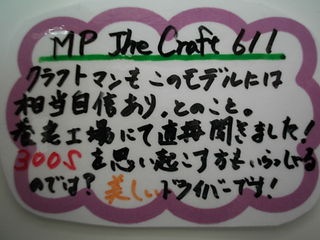 MP The Craft 611
クラフトマンもこのモデルには
相当自信あり、とのこと。
養老工場にて直接聞きました！
300Sを思い起こす方もいらっしゃる
のでは？美しいドライバーです！